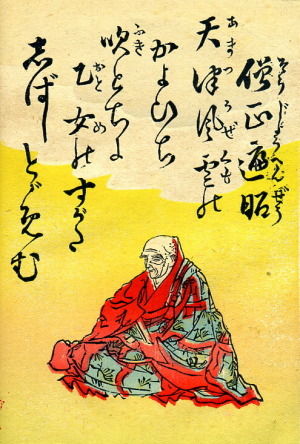 僧正遍昭
天津風雲の
かよひち
吹とちよ
乙女のすがた
志ばし
とゞめむ